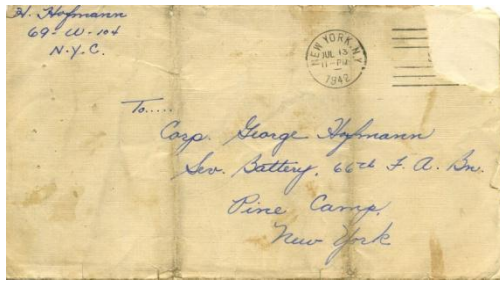 H. Hofmann
69-W-104
N.Y.C.
NEW YORK, N.Y.
JUL 13
11-PM
1942
To.....
Corp. George Hofmann
Serv. Battery, 66th F. A. Bn.
Pine Camp,
New York